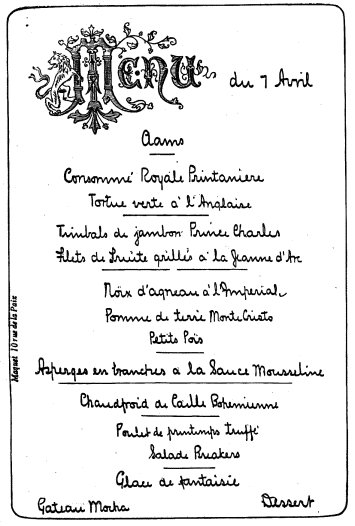 Menu du 7 Avril
Aams
Consommé Royale Printaniere
Tortue verte à l'Anglaise
Timbals de jambon Prince Charles
Filets de Truite grillés à la Jeanne d'Arc
Noix d'agneau à l'Imperial
Pomme de terre Monte Cristo
Petits Pois
Asperges en branches a la Sauce Mousseline
Chaudfroid de Caille Bohemienne
Poulet de printemps truffé
Salade Breakers
Glace de fantaisie
Gateau Mocha
Dessert
Maquet 10 rue de la Paix